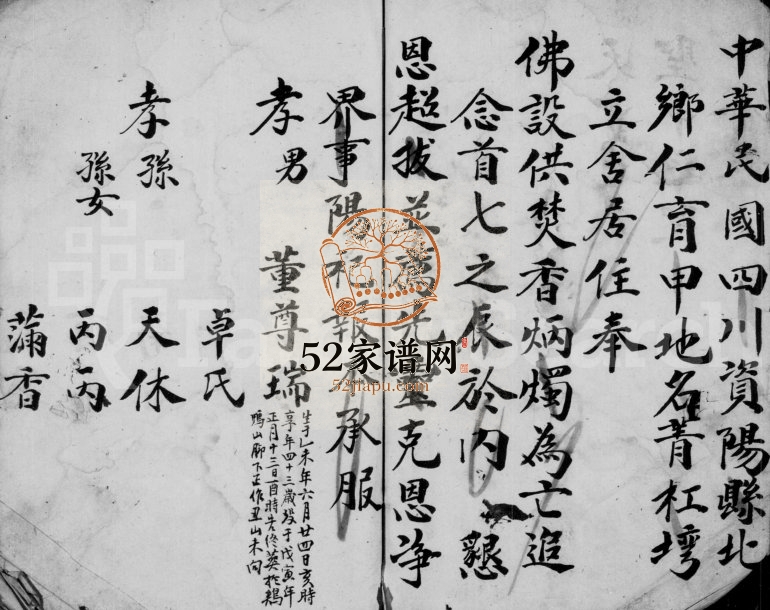 中華民國四川資陽縣北
鄉仁育甲地名菁杠塆
立舍居住奉
佛設供焚香炳燭為亡追
念首七之辰於内 懇
恩超拔並薦先靈克恩净
界事陽祀報承服
孝男 董尊瑞
生于乙未年六月廿四日亥時
享年四十三歲殁于戊寅年
正月十三日酉時告终葵於鷄
鳴山脚下正作丑山未向
卓氏
孝孫 天休
孫女 丙丙
蒲香
52家谱网
52jiapu.com